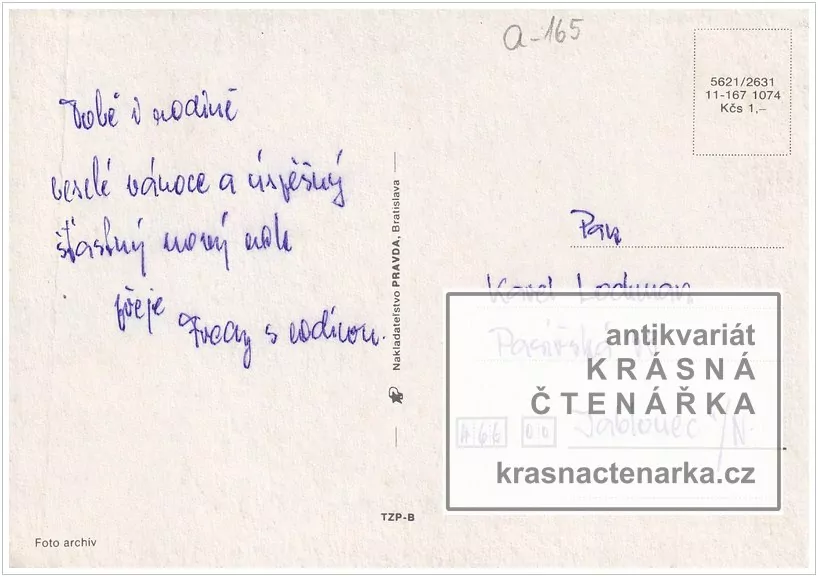 a-165
5621/2631
11-167 1074
Kčs 1,–
Tobě i rodině
veselé vánoce a úspěšný
šťastný nový rok
přeje
Fredy s rodinou.
Nakladatelstvo PRAVDA, Bratislava
Pan
Karel Lochman
Pasířská
466 00 Jablonec /N.
antikvariát
KRÁSNÁ
ČTENÁŘKA
krasnactenarka.cz
TZP-B
Foto archiv